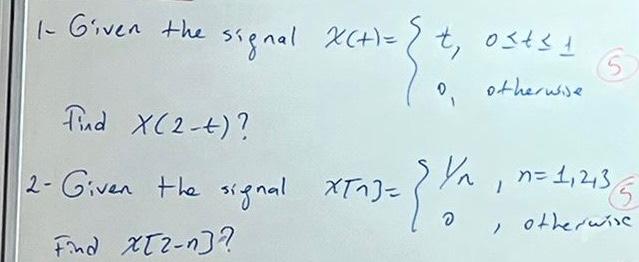 1- Given the signal x(t)= { t, 0≤t≤1
0, otherwise
5
Find x(2-t)?
2- Given the signal x[n]= { 1/n, n=1,2,3
0, otherwise
5
Find x[2-n]?